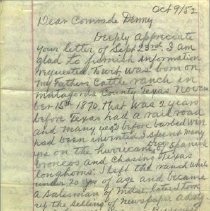 Oct 9/52
Dear Comrade Denny
Deeply Appreciate
your letter of Sept 23rd, I am
glad to furnish information
requested. I was born on
my Fathers Cattle ranch in
Matagorda County Texas Novem
ber 16th 1870. That was 2 years
before Texas had a rail road
and many years before barbed wire
had been invented. I spent many
years on the hurricane deck of Spanish
broncos and chasing Texas
longhorns. I left the ranch when
under 20 years of age and became
a salesman of
up the selling of newspaper advtg